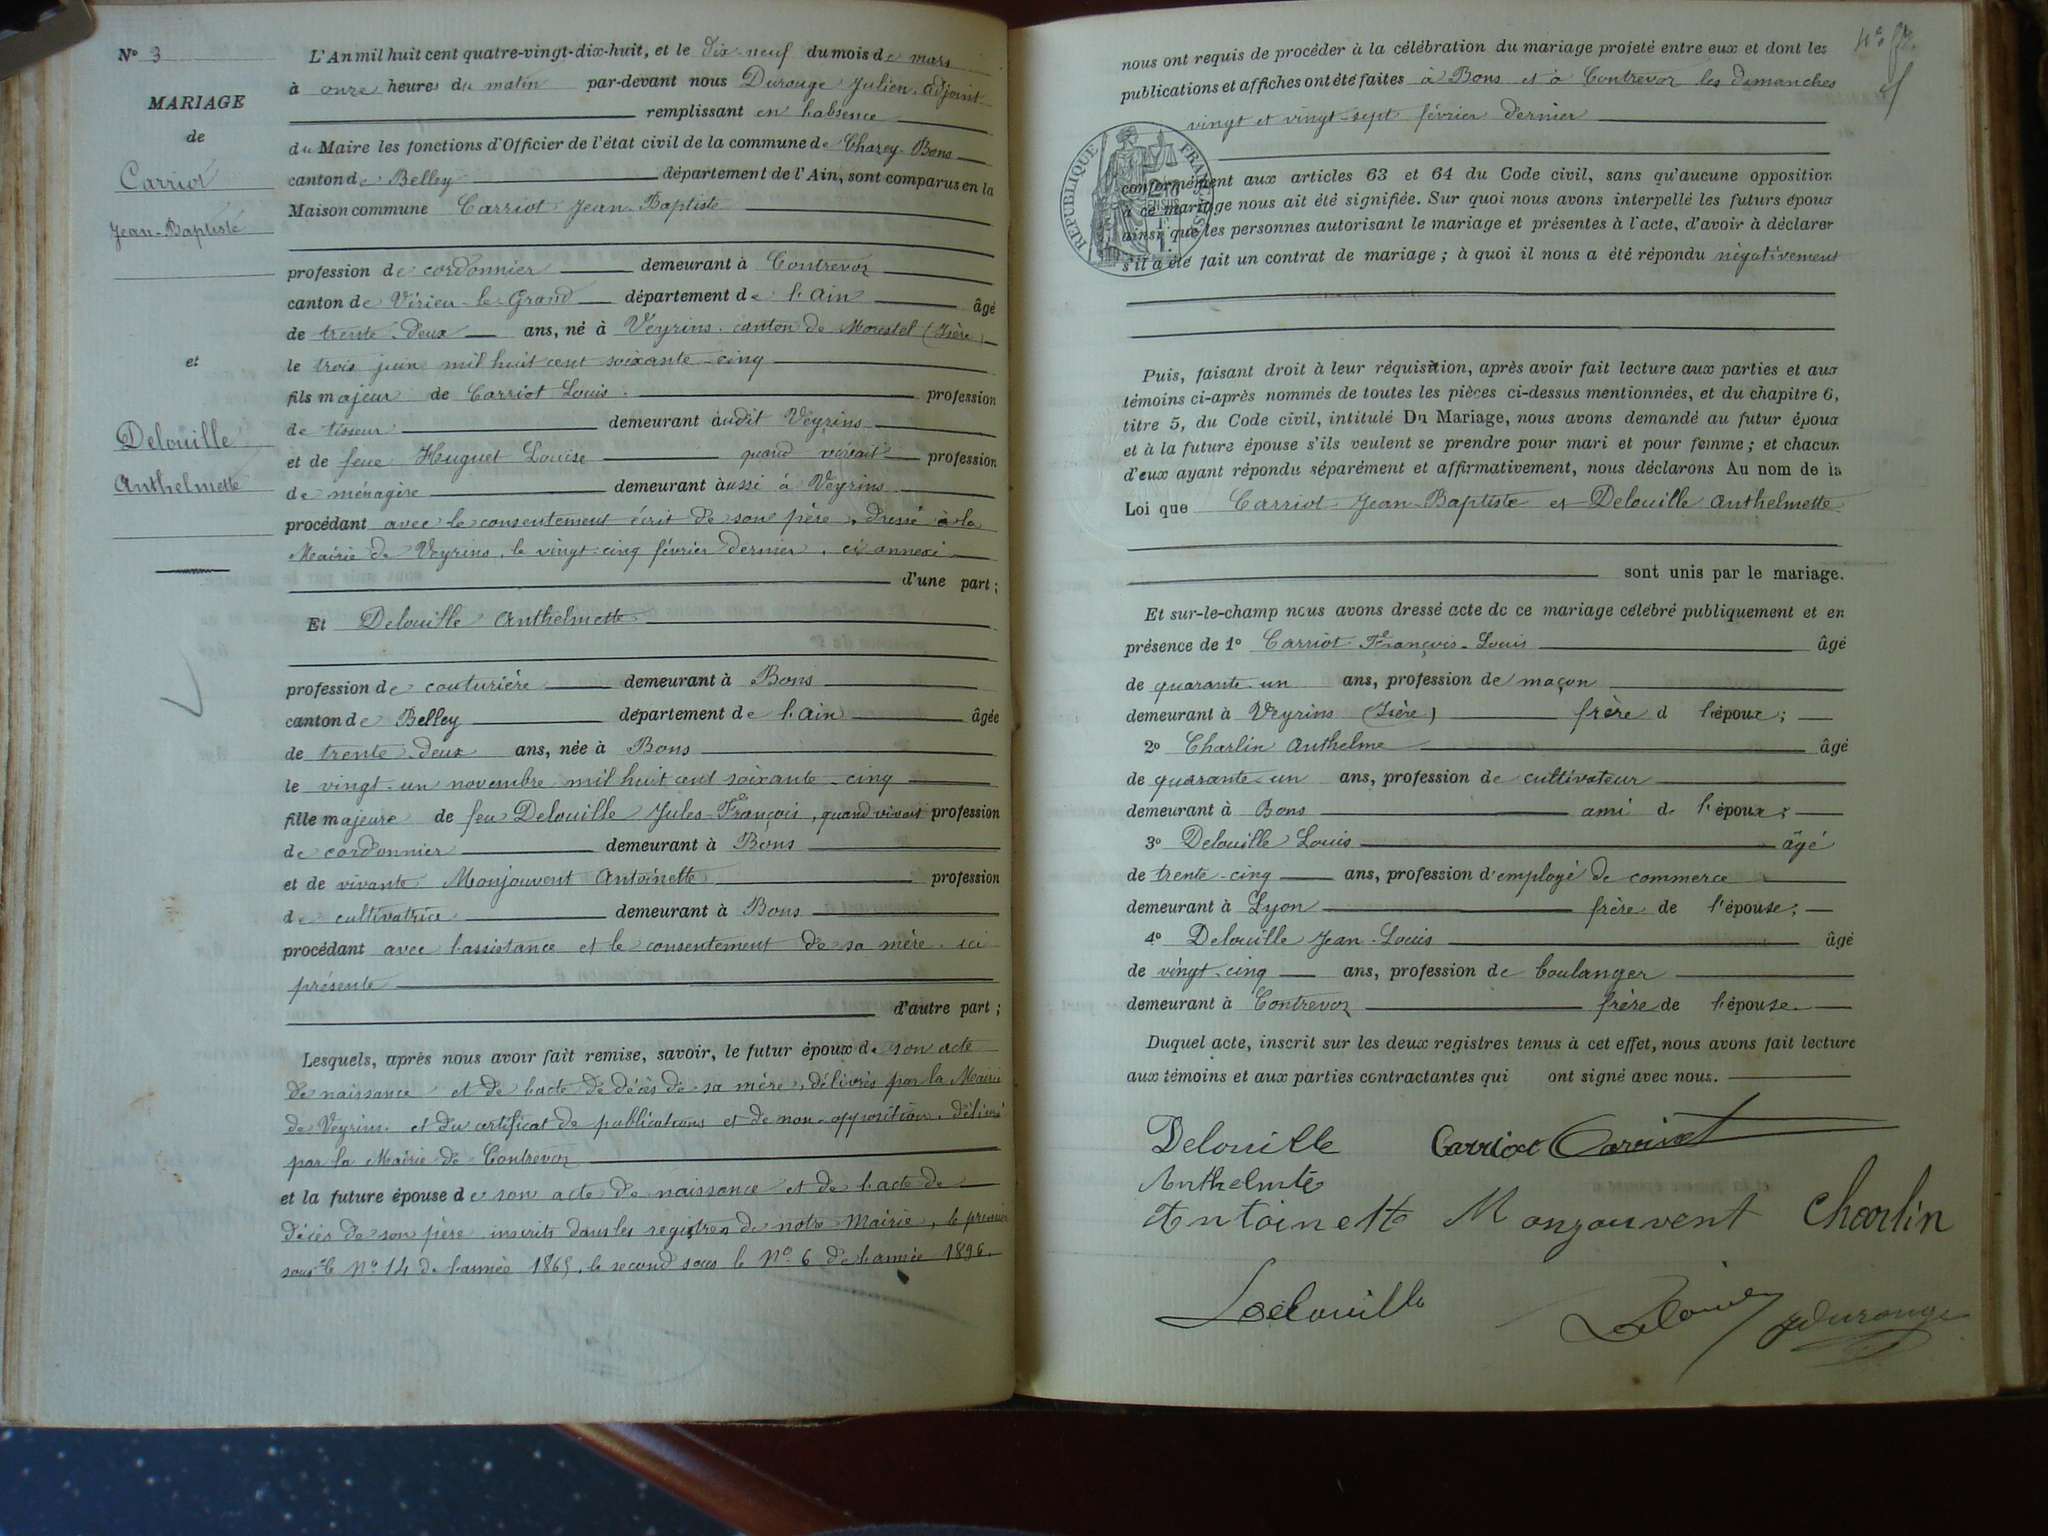 N° 3
MARIAGE
de
Carriot
Jean-Baptiste
et
Delouille
Anthelmette
L'An mil huit cent quatre-vingt-dix-huit, et le dix-neuf du mois de mars
à onze heures du matin par-devant nous Durouge Julien, adjoint
remplissant en l'absence
du Maire les fonctions d'Officier de l'état civil de la commune de Chazey-Bons
canton de Belley département de l'Ain, sont comparus en la
Maison commune Carriot Jean-Baptiste
profession de cordonnier demeurant à Contrevoz
canton de Virieu-le-Grand département de l'Ain âgé
de trente-deux ans, né à Veyrins canton de Morestel (Isère)
le trois juin mil huit cent soixante-cinq
fils majeur de Carriot Louis profession
de tisseur demeurant audit Veyrins
et de feue Huguet Louise quand vivait profession
de ménagère demeurant aussi à Veyrins
procédant avec le consentement écrit de son père, dressé à la
Mairie de Veyrins, le vingt-cinq février dernier, ci annexé
d'une part;
Et Delouille Anthelmette
profession de couturière demeurant à Bons
canton de Belley département de l'Ain âgée
de trente-deux ans, née à Bons
le vingt-un novembre mil huit cent soixante-cinq
fille majeure de feu Delouille Jules-François, quand vivait profession
de cordonnier demeurant à Bons
et de vivante Monjouvent Antoinette profession
de cultivatrice demeurant à Bons
procédant avec l'assistance et le consentement de sa mère ici
présente
d'autre part;
Lesquels, après nous avoir fait remise, savoir, le futur époux de son acte
de naissance et de l'acte de décès de sa mère, délivrés par la Mairie
de Veyrins et du certificat de publications et de non-opposition, délivré
par la Mairie de Contrevoz
et la future épouse de son acte de naissance et de l'acte de
décès de son père inscrits dans les registres de notre Mairie, le premier
sous le N° 14 de l'année 1865, le second sous le N° 6 de l'année 1896.
nous ont requis de procéder à la célébration du mariage projeté entre eux et dont les
publications et affiches ont été faites à Bons et à Contrevoz les dimanches
vingt et vingt-sept février dernier
REPUBLIQUE FRANÇAISE
conformément aux articles 63 et 64 du Code civil, sans qu'aucune opposition
à ce mariage nous ait été signifiée. Sur quoi nous avons interpellé les futurs époux
ainsi que les personnes autorisant le mariage et présentes à l'acte, d'avoir à déclarer
s'il a été fait un contrat de mariage; à quoi il nous a été répondu négativement
Puis, faisant droit à leur réquisition, après avoir fait lecture aux parties et aux
témoins ci-après nommés de toutes les pièces ci-dessus mentionnées, et du chapitre 6,
titre 5, du Code civil, intitulé Du Mariage, nous avons demandé au futur époux
et à la future épouse s'ils veulent se prendre pour mari et pour femme; et chacun
d'eux ayant répondu séparément et affirmativement, nous déclarons Au nom de la
Loi que Carriot Jean-Baptiste et Delouille Anthelmette
sont unis par le mariage.
Et sur-le-champ nous avons dressé acte de ce mariage célébré publiquement et en
présence de 1° Carriot François-Louis âgé
de quarante-un ans, profession de maçon
demeurant à Veyrins (Isère) frère d l'époux;
2° Charlin Anthelme âgé
de quarante-un ans, profession de cultivateur
demeurant à Bons ami de l'époux;
3° Delouille Louis âgé
de trente-cinq ans, profession d'employé de commerce
demeurant à Lyon frère de l'épouse;
4° Delouille Jean-Louis âgé
de vingt-cinq ans, profession de boulanger
demeurant à Contrevoz frère de l'épouse.
Duquel acte, inscrit sur les deux registres tenus à cet effet, nous avons fait lecture
aux témoins et aux parties contractantes qui ont signé avec nous.
Delouille Carriot Carriot
Anthelmte
Antoinette Monjouvent Charlin
Delouille Delouille JDurouge